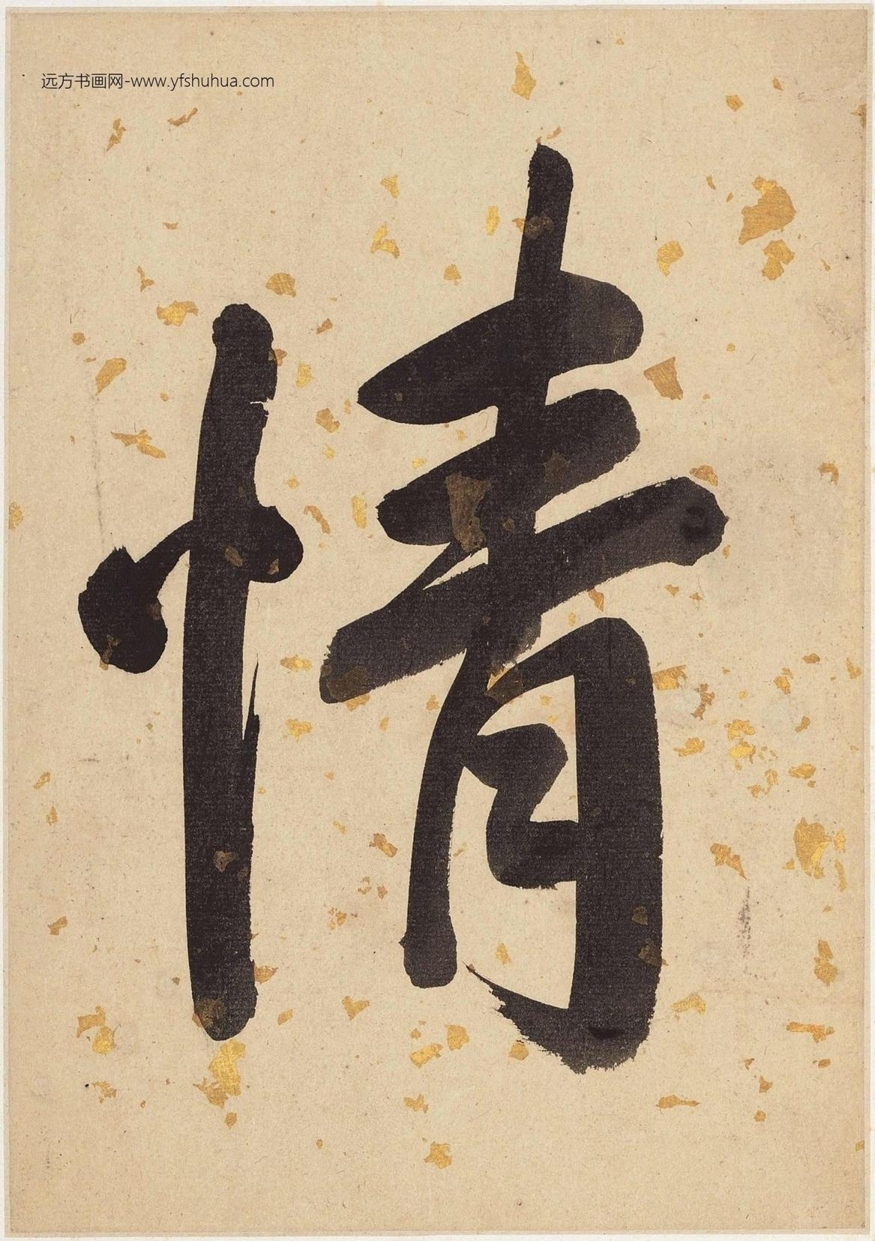 远方书画网-www.yfshuhua.com
情